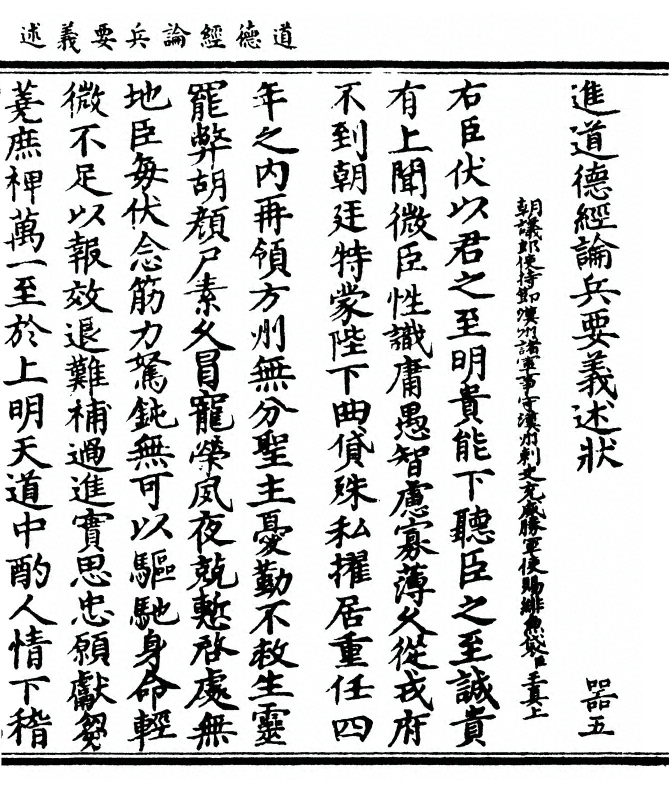 道德經論兵要義述
進道德經論兵要義述狀 器五
朝議郎使持節漢州諸軍事守漢州刺史充威勝軍使賜緋魚袋臣王真上
右臣伏以君之至明貴能下聽臣之至誠貴
有上聞微臣性識庸愚智慮寡薄久從戎府
不到朝廷特蒙陛下曲貸殊私擢居重任四
年之內再領方州無分聖主憂勤不救生靈
罷弊胡顏尸素久冒寵榮夙夜兢慙啓處無
地臣每伏念筋力駑鈍無可以驅馳身命輕
微不足以報效退難補過進實思忠願獻芻
蕘庶裨萬一至於上明天道中酌人情下稽